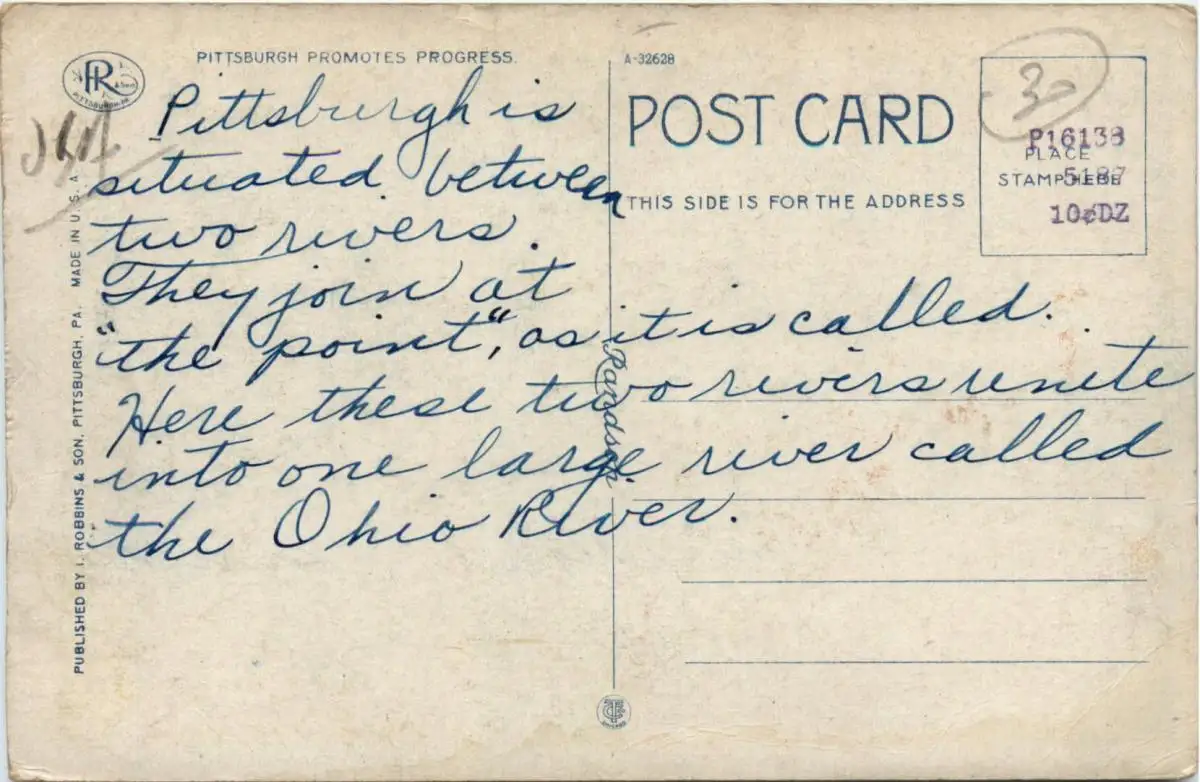 PITTSBURGH PROMOTES PROGRESS.
R
& Son
PITTSBURGH, PA.
PUBLISHED BY I. ROBBINS & SON, PITTSBURGH, PA. MADE IN U. S. A.
Pittsburgh is
situated between
two rivers.
They join at
"the point", as it is called.
Here these two rivers unite
into one large river called
the Ohio River.
A-32628
POST CARD
THIS SIDE IS FOR THE ADDRESS
30
PLACE
STAMP HERE
P16138
10¢DZ